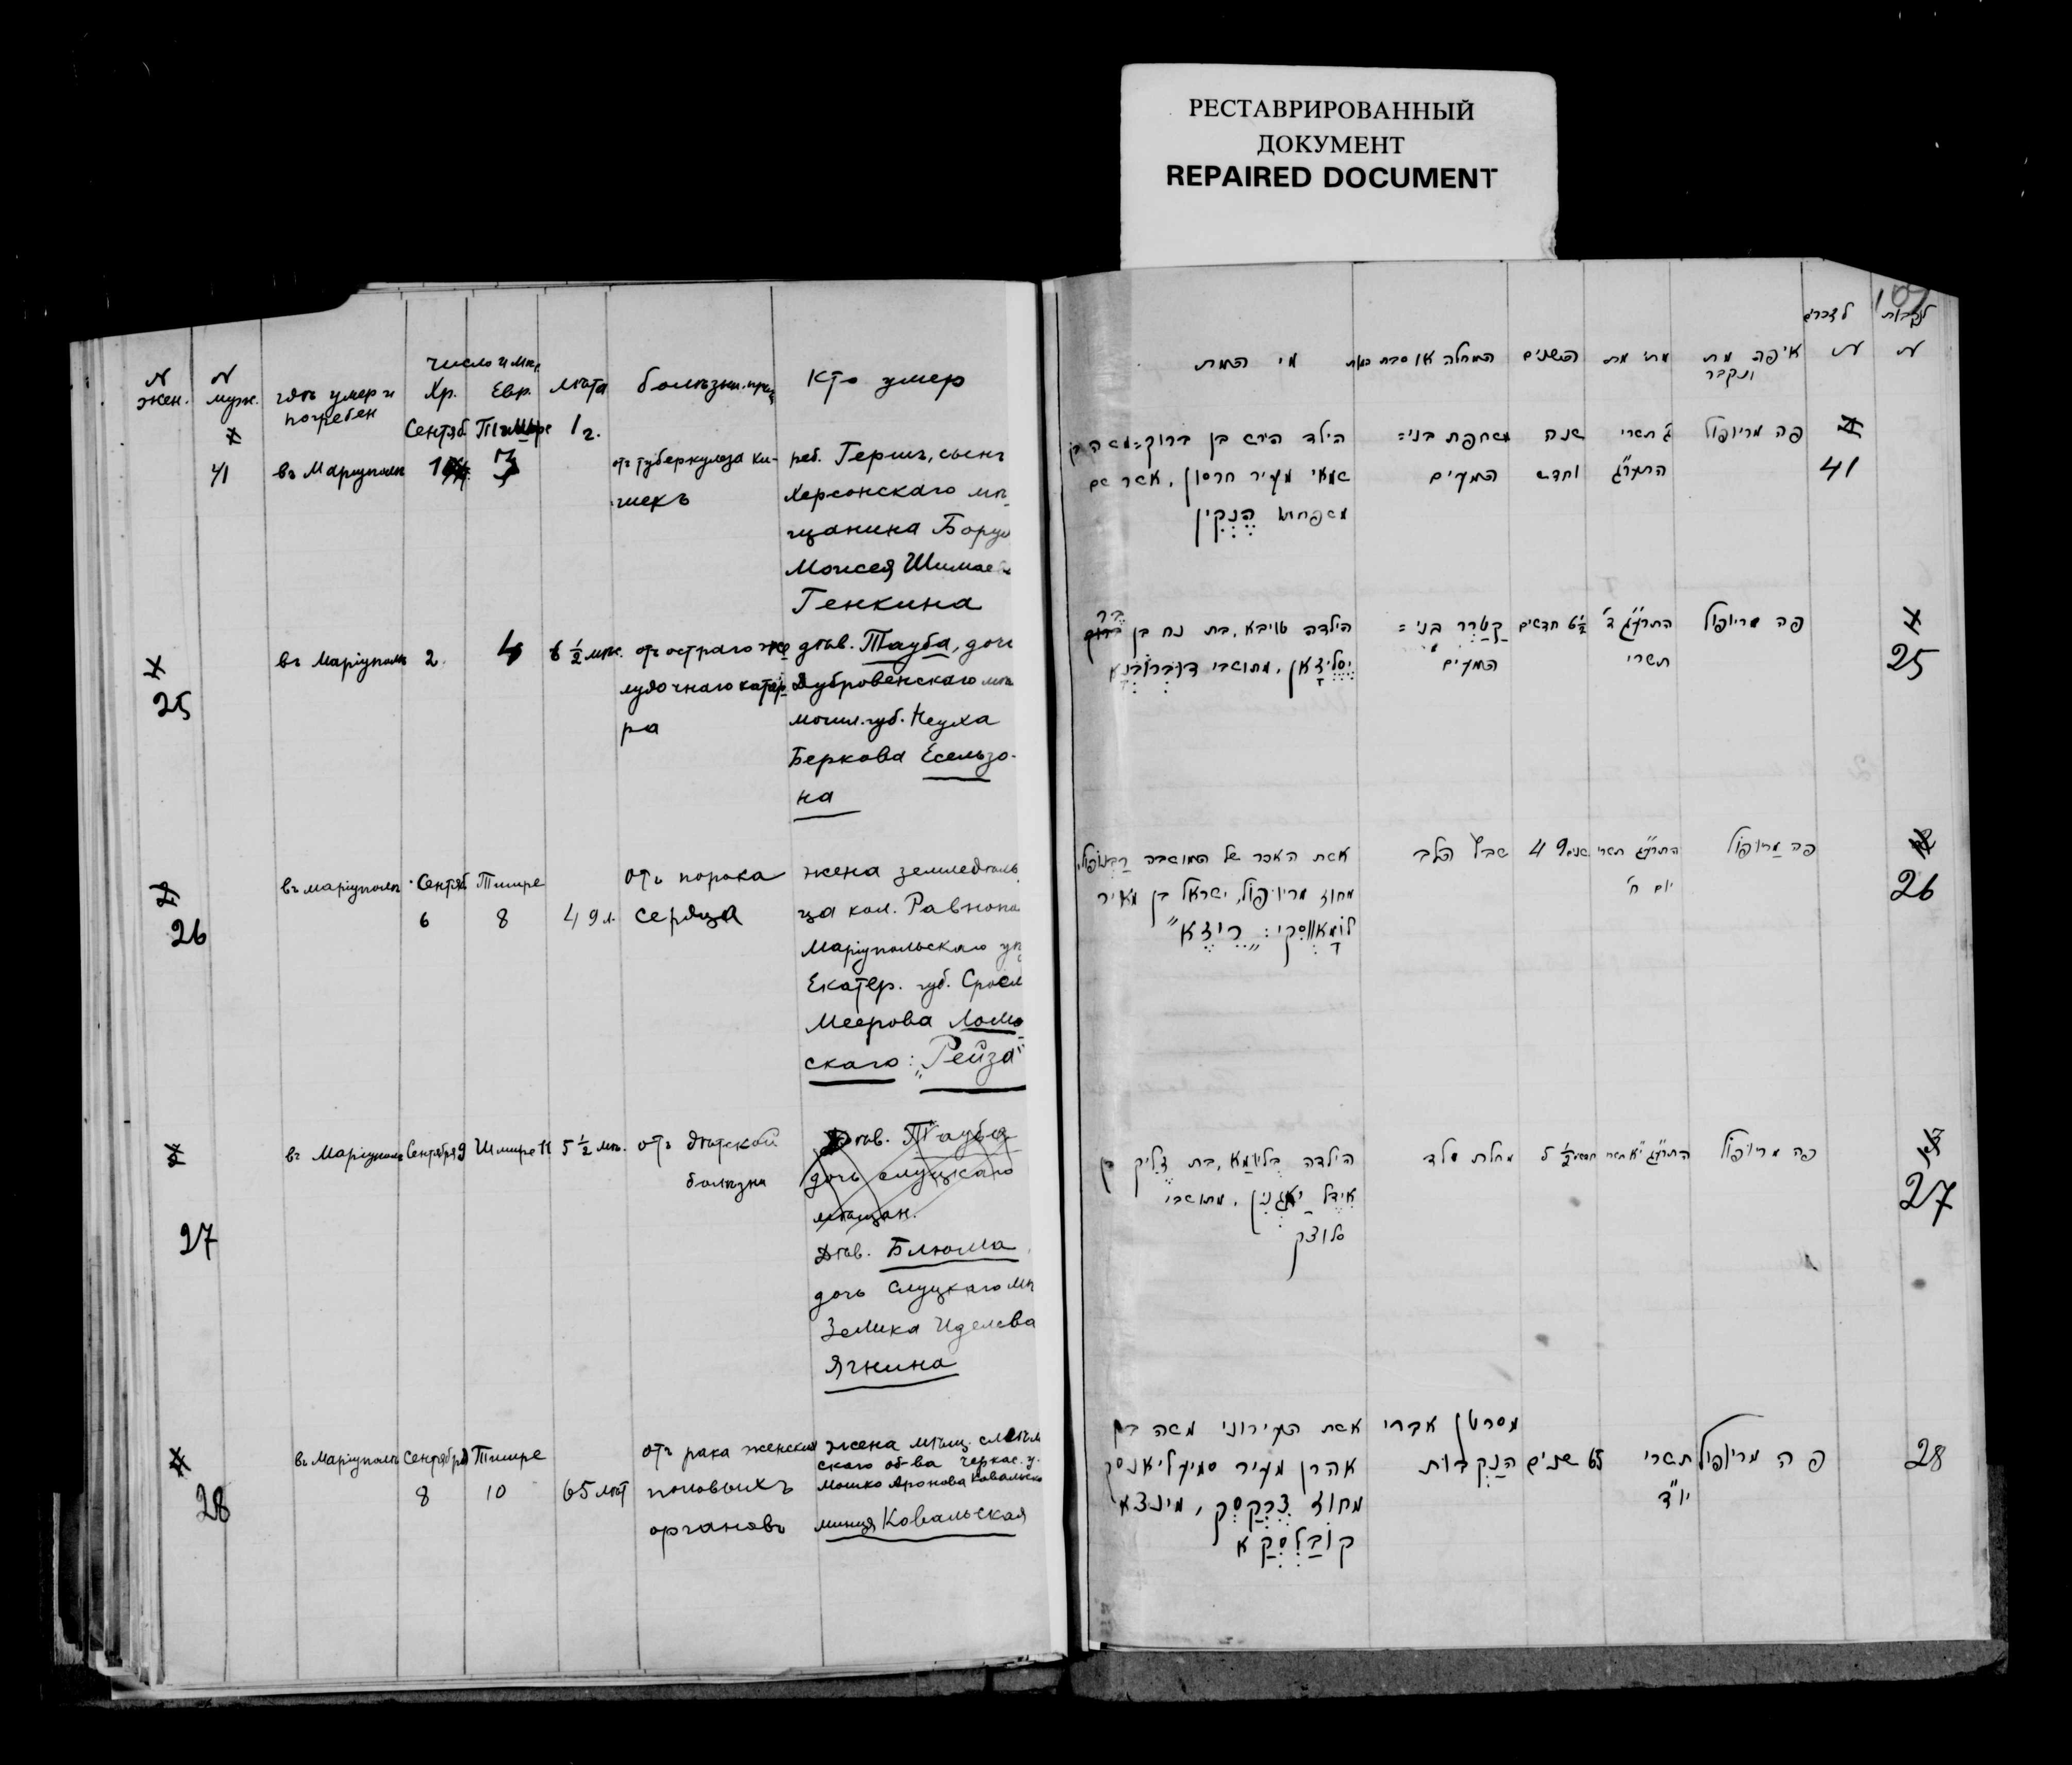 РЕСТАВРИРОВАННЫЙ
ДОКУМЕНТ
REPAIRED DOCUMENT
N жен.
N муж.
гдѣ умер и погребен
число и мѣс.
Хр.
Евр.
лѣта
болѣзни
Кто умер
41
въ Маріуполѣ
Сентяб.
Тишре
3
1 г.
отъ туберкулеза ки-
шекъ
реб. Герш, сынъ
Херсонскаго мѣ
щанина Борух
Моисея Шимае
Генкина
25
въ Маріуполѣ
2.
4
6 ½ мѣс.
отъ остраго же
лудочнаго катар
ра
дѣв. Тауба, дочь
Дубровенскаго мѣ
могил. губ. Неуха
Беркова Есельзо-
на
26
въ Маріуполѣ
Сентяб
6
Тишре
8
49 л.
отъ порока
сердца
жена земледѣль
ца кол. Равнопо
Маріупольскаго у
Екатер. губ. Сроел
Меерова Ломо
скаго: „Рейза“
27
въ Маріуполѣ
Сентября 9
Тишре 11
5 ½ мѣ.
отъ дѣтской
болѣзни
Дѣв. Тауба
дочь слуцкаго
мѣщан.
Дѣв. Блюма,
дочь Слуцкаго мѣ
Зелика Иделева
Ягнина
28
въ Маріуполѣ
Сентября
8
Тишре
10
65 лѣт
отъ рака женских
половыхъ
органовъ
жена мѣщ. смѣлян
скаго об-ва черкас. у.
Мошко Аронова Ковальско
Минця Ковальская
לנקבות
לזכרים
איפה מת
ונקבר
מתי מת
השנים
המחלה או סבת המות
מי המת
41
פה מריופול
ג' תשרי
התרע"ג
שנה
וחדש
משחפת בני=
המעים
הילד הירש בן ברוך=משה בן
שמאי מעיר חרסון, אשר שם
משפחתו הֶנְקִין
25
פה מריופול
התרע"ג ד'
תשרי
6½ חדשים
קַטַרַר בני=
המעים
הילדה טויבא, בת נח בן
בר
יֶסֶלְזָאן, מתושבי דוּבְּרוֹבְנָא
26
פה מריופול
התרע"ג תשרי
יום ח'
49 שנים
שבץ הלב
אשת האכר של המושבה רַבְנוֹפּוֹל,
מחוז מריופול, ישראל בן מאיר
לוֹמָאווסְקִי: „רֵיזֶא“
27
פה מריופול
התרע"ג י"א תשרי
5½ חדשים
מחלת ילד
הילדה בְּלִיוּמַא, בת זֶלִיק בן
אִידֶל יַאגְנִין, מתושבי
סלוצק
28
פה מריופול
תשרי
יו"ד
65 שנים
מסרטן אברי
הַנְקֵבוּת
אשת העירוני משה בן
אהרן מעיר סמיליאנסק
מחוז צֶרְקַסְק, מינצא
קוֹבַלְסְקַא